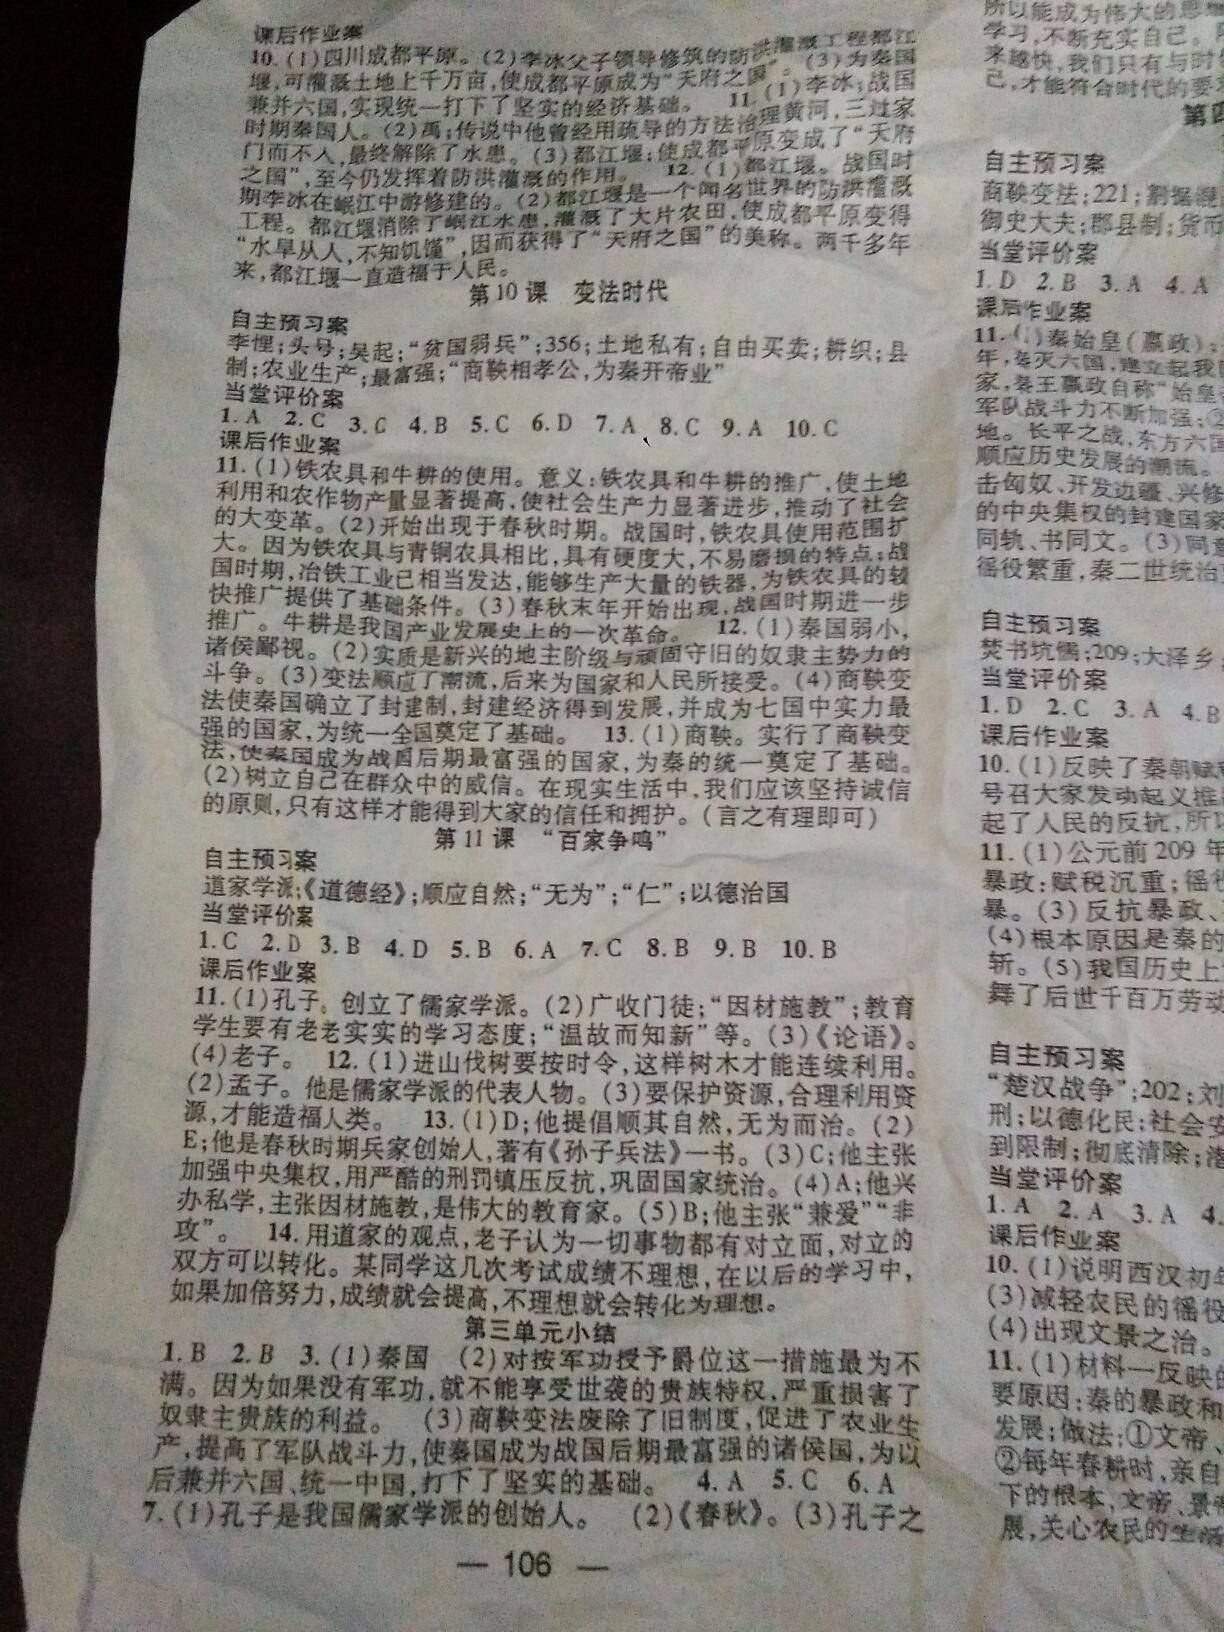 课后作业案
10.(1)四川成都平原。(2)李冰父子领导修筑的防洪灌溉工程都江
堰,可灌溉土地上千万亩,使成都平原成为“天府之国”。(3)为秦国
兼并六国,实现统一打下了坚实的经济基础。 11.(1)李冰;战国
时期秦国人。(2)禹;传说中他曾经用疏导的方法治理黄河,三过家
门而不入,最终解除了水患。(3)都江堰;使成都平原变成了“天府
之国”,至今仍发挥着防洪灌溉的作用。 12.(1)都江堰。战国时
期李冰在岷江中游修建的。(2)都江堰是一个闻名世界的防洪灌溉
工程。都江堰消除了岷江水患,灌溉了大片农田,使成都平原变得
“水旱从人,不知饥馑”,因而获得了“天府之国”的美称。两千多年
来,都江堰一直造福于人民。
第10课 变法时代
自主预习案
李悝;头号;吴起;“贫国弱兵”;356;土地私有;自由买卖;耕织;县
制;农业生产;最富强;“商鞅相孝公,为秦开帝业”
当堂评价案
1.A 2.C 3.C 4.B 5.C 6.D 7.A 8.C 9.A 10.C
课后作业案
11.(1)铁农具和牛耕的使用。意义:铁农具和牛耕的推广,使土地
利用和农作物产量显著提高,使社会生产力显著进步,推动了社会
的大变革。(2)开始出现于春秋时期。战国时,铁农具使用范围扩
大。因为铁农具与青铜农具相比,具有硬度大,不易磨损的特点;战
国时期,冶铁工业已相当发达,能够生产大量的铁器,为铁农具的较
快推广提供了基础条件。(3)春秋末年开始出现,战国时期进一步
推广。牛耕是我国产业发展史上的一次革命。 12.(1)秦国弱小,
诸侯鄙视。(2)实质是新兴的地主阶级与顽固守旧的奴隶主势力的
斗争。(3)变法顺应了潮流,后来为国家和人民所接受。(4)商鞅变
法使秦国确立了封建制,封建经济得到发展,并成为七国中实力最
强的国家,为统一全国奠定了基础。 13.(1)商鞅。实行了商鞅变
法,使秦国成为战国后期最富强的国家,为秦的统一奠定了基础。
(2)树立自己在群众中的威信。在现实生活中,我们应该坚持诚信
的原则,只有这样才能得到大家的信任和拥护。(言之有理即可)
第11课 “百家争鸣”
自主预习案
道家学派;《道德经》;顺应自然;“无为”;“仁”;以德治国
当堂评价案
1.C 2.D 3.B 4.D 5.B 6.A 7.C 8.B 9.B 10.B
课后作业案
11.(1)孔子。创立了儒家学派。(2)广收门徒;“因材施教”;教育
学生要有老老实实的学习态度;“温故而知新”等。(3)《论语》。
(4)老子。 12.(1)进山伐树要按时令,这样树木才能连续利用。
(2)孟子。他是儒家学派的代表人物。(3)要保护资源,合理利用资
源,才能造福人类。 13.(1)D;他提倡顺其自然,无为而治。(2)
E;他是春秋时期兵家创始人,著有《孙子兵法》一书。(3)C;他主张
加强中央集权,用严酷的刑罚镇压反抗,巩固国家统治。(4)A;他兴
办私学,主张因材施教,是伟大的教育家。(5)B;他主张“兼爱”“非
攻”。 14.用道家的观点,老子认为一切事物都有对立面,对立的
双方可以转化。某同学这几次考试成绩不理想,在以后的学习中,
如果加倍努力,成绩就会提高,不理想就会转化为理想。
第三单元小结
1.B 2.B 3.(1)秦国 (2)对按军功授予爵位这一措施最为不
满。因为如果没有军功,就不能享受世袭的贵族特权,严重损害了
奴隶主贵族的利益。 (3)商鞅变法废除了旧制度,促进了农业生
产,提高了军队战斗力,使秦国成为战国后期最富强的诸侯国,为以
后兼并六国、统一中国,打下了坚实的基础。 4.A 5.C 6.A
7.(1)孔子是我国儒家学派的创始人。 (2)《春秋》。(3)孔子之
— 106 —
所以能成为伟大的思
学习,不断充实自己。
来越快,我们只有与时
己,才能符合时代的要
第四
自主预习案
商鞅变法;221;割据
御史大夫;郡县制;货币
当堂评价案
1.D 2.B 3.A 4.A
课后作业案
11.(1)秦始皇(嬴政);
年,秦灭六国,建立起我
家,秦王嬴政自称“始皇
军队战斗力不断加强;②
地。长平之战,东方六国
顺应历史发展的潮流。
击匈奴、开发边疆、兴修
的中央集权的封建国家
同轨、书同文。(3)同意
徭役繁重,秦二世统治
自主预习案
焚书坑儒;209;大泽乡
当堂评价案
1.D 2.C 3.A 4.B
课后作业案
10.(1)反映了秦朝赋
号召大家发动起义推
起了人民的反抗,所以
11.(1)公元前209年
暴政:赋税沉重;徭役
暴。(3)反抗暴政、
(4)根本原因是秦的
斩。(5)我国历史上
舞了后世千百万劳动
自主预习案
“楚汉战争”;202;刘
刑;以德化民;社会安
到限制;彻底清除;
当堂评价案
1.A 2.A 3.A 4.
课后作业案
10.(1)说明西汉初年
(3)减轻农民的徭役
(4)出现文景之治。
11.(1)材料一反映的
要原因;秦的暴政和
发展;做法:①文帝、
②每年春耕时,亲自
下的根本,文帝、景帝
展,关心农民的生活